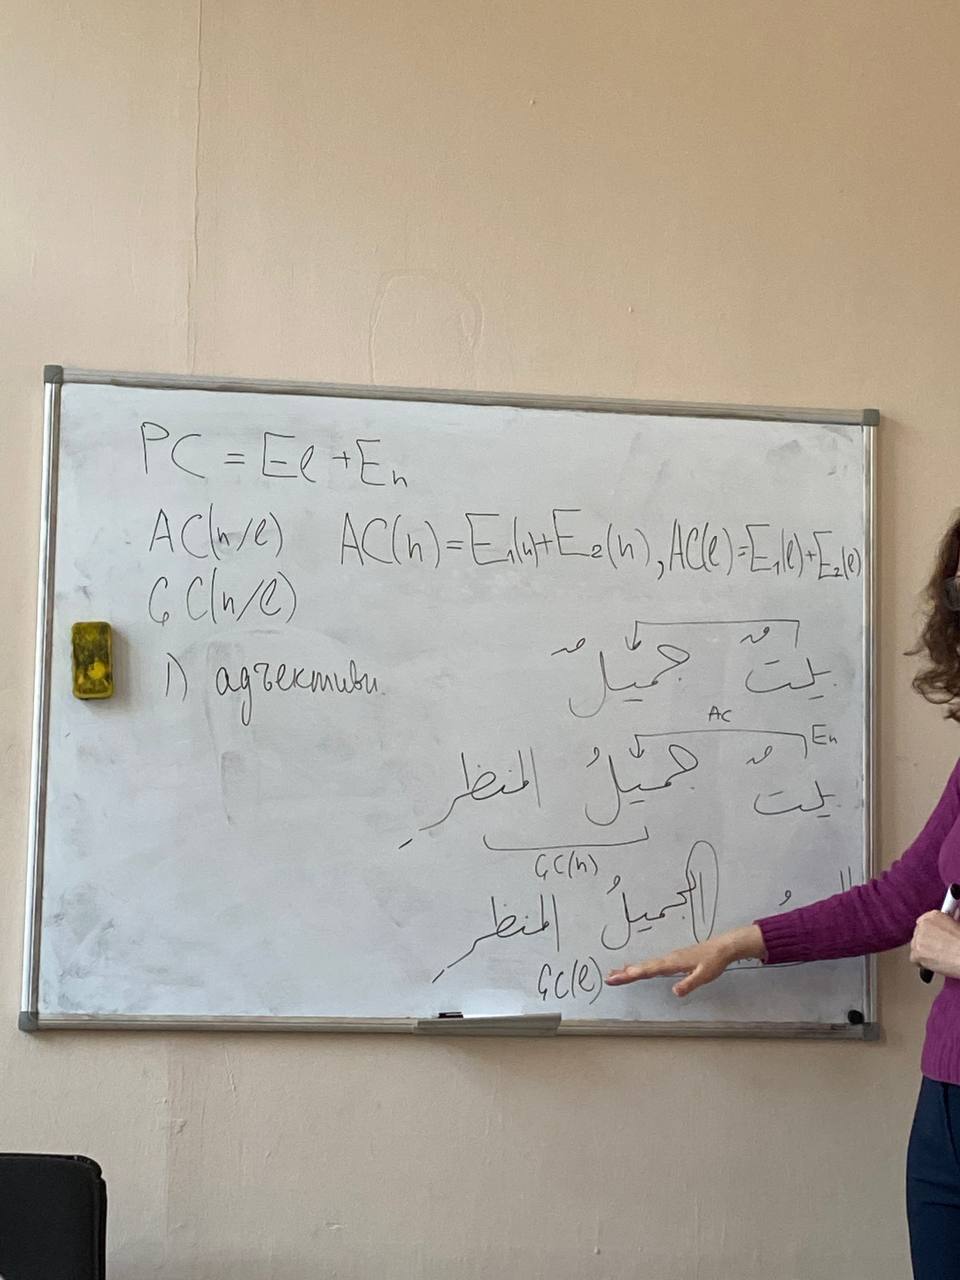 PC = El + En
AC(n/l) AC(n) = E₁(n) + E₂(n), AC(l) = E₁(l) + E₂(l)
GC(n/l)
1) адъективи.
بيتٌ جميلٌ
AC
En
بيتٌ جميلُ المنظرِ
GC(n)
الجميلُ المنظرِ
GC(l)